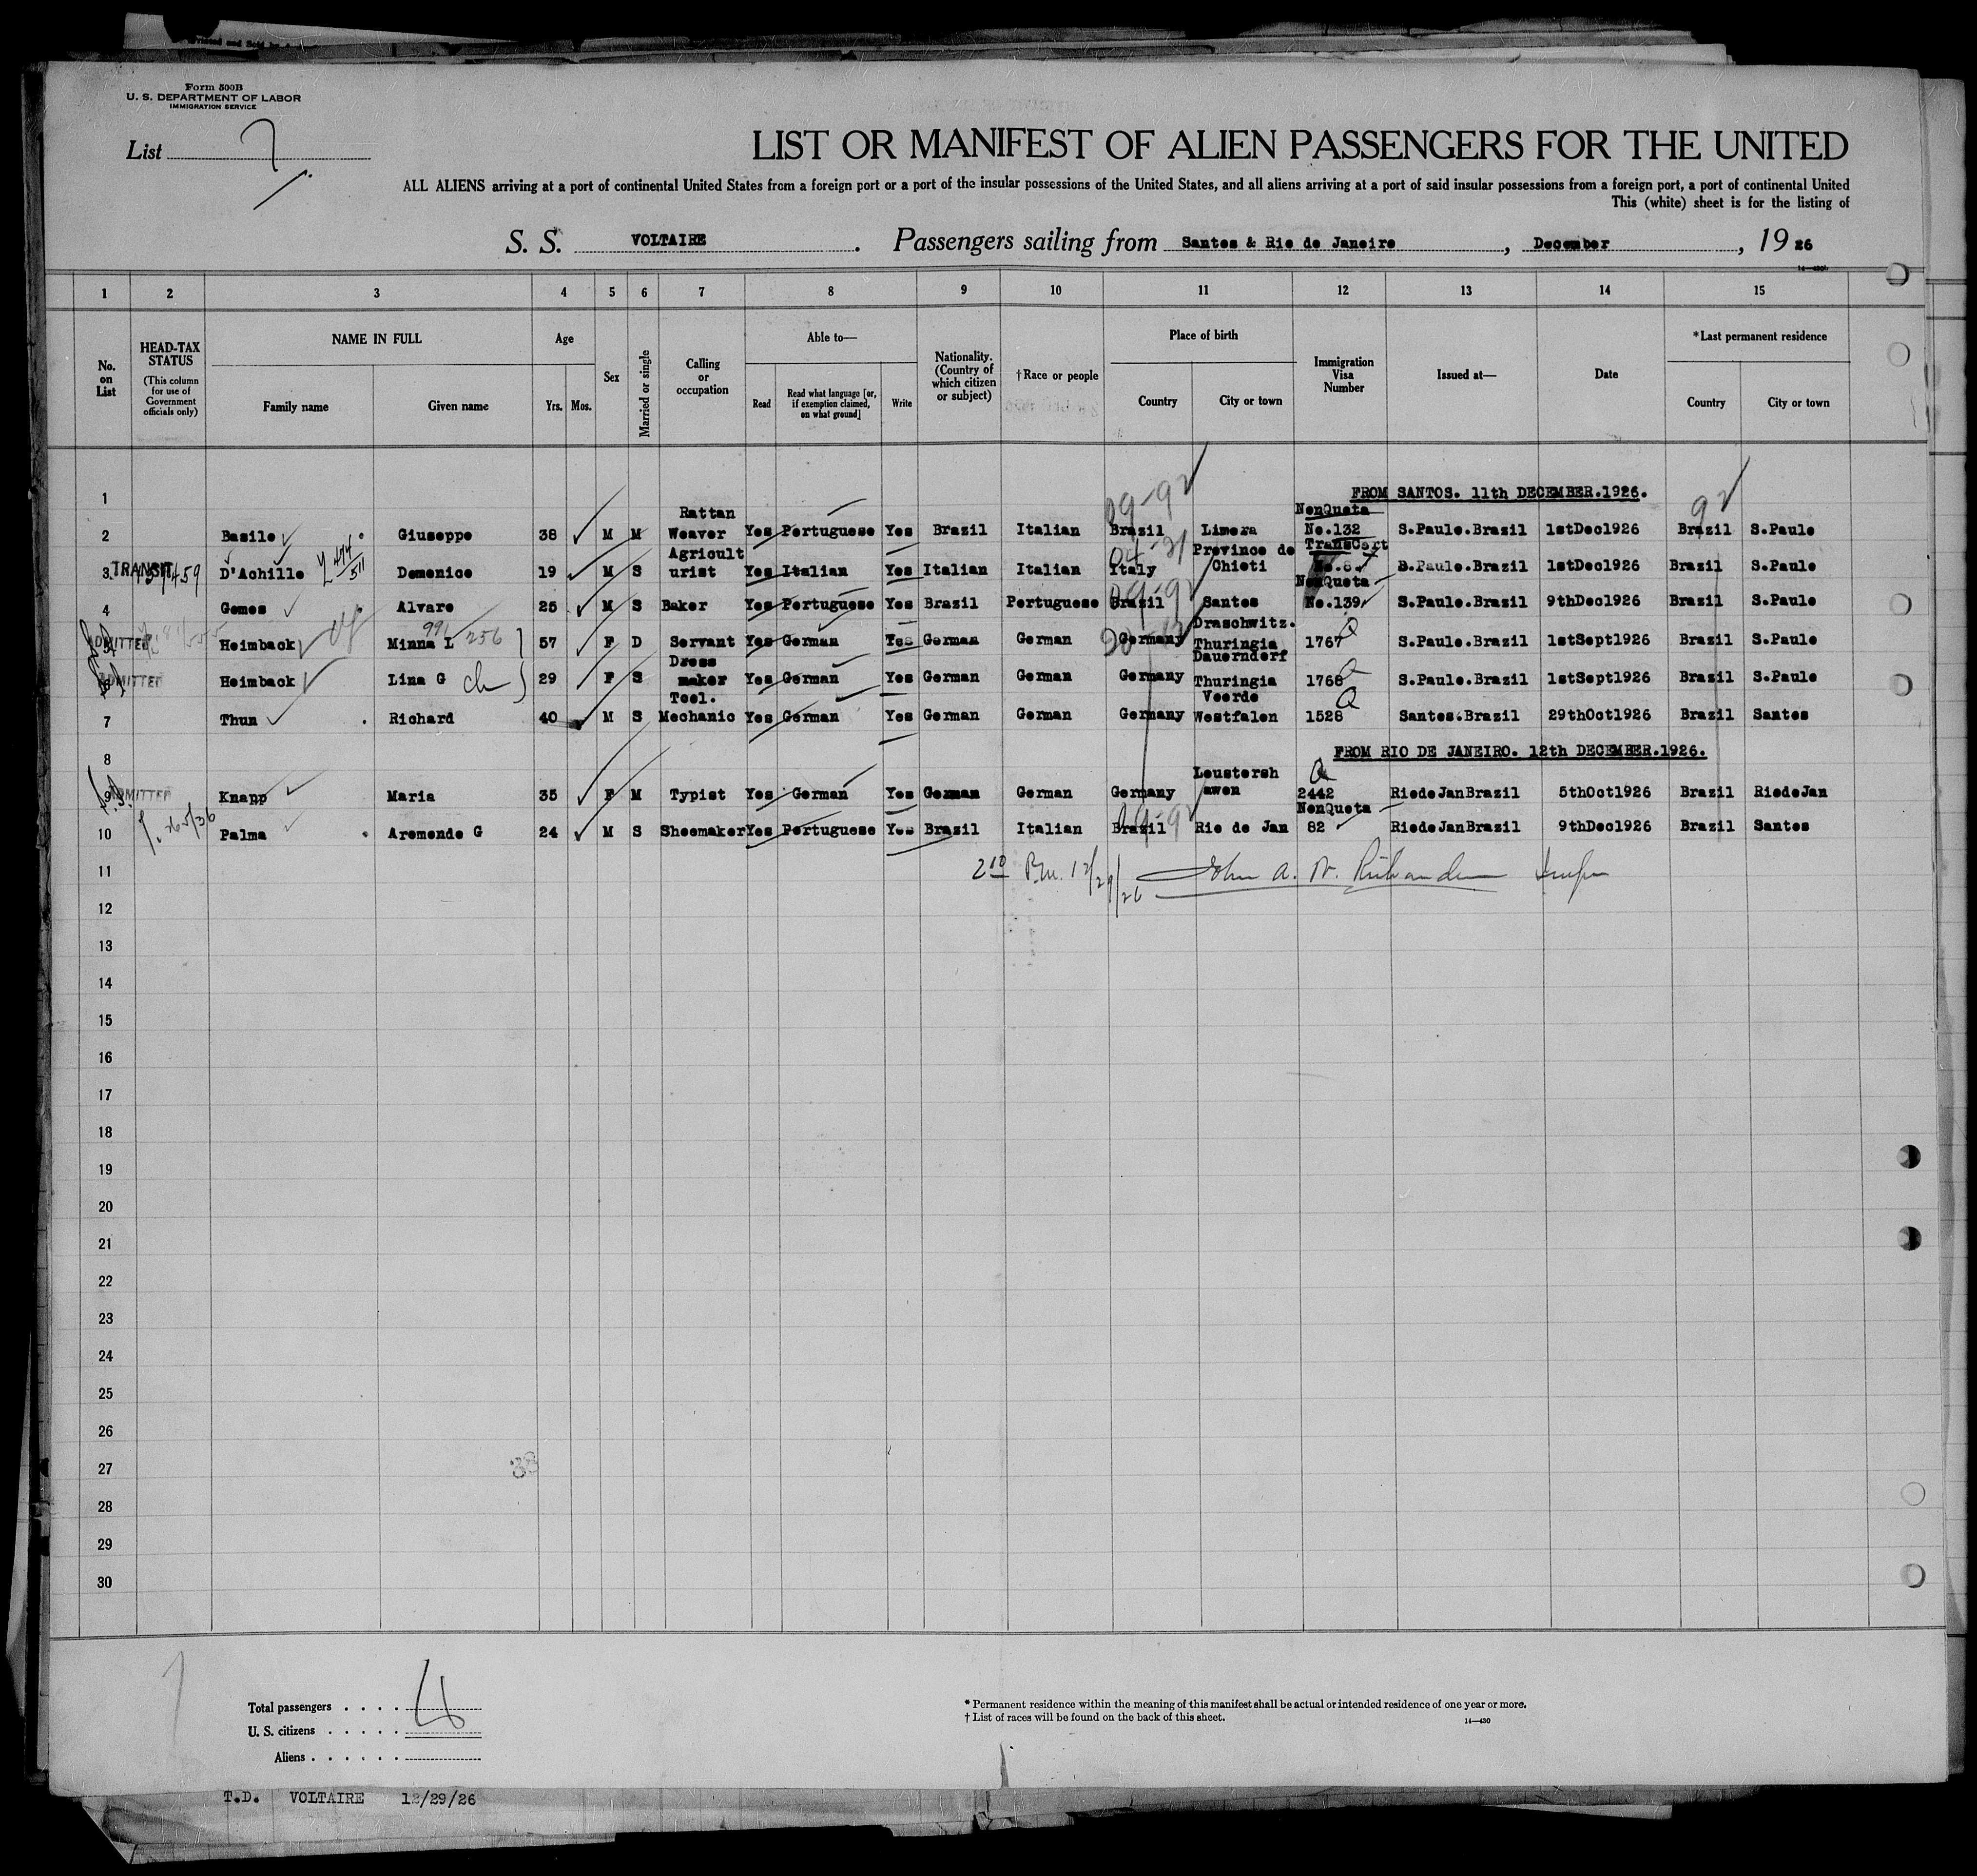 Form 500B
U. S. DEPARTMENT OF LABOR
IMMIGRATION SERVICE
List 7
LIST OR MANIFEST OF ALIEN PASSENGERS FOR THE UNITED
ALL ALIENS arriving at a port of continental United States from a foreign port or a port of the insular possessions of the United States, and all aliens arriving at a port of said insular possessions from a foreign port, a port of continental United
This (white) sheet is for the listing of
S. S. VOLTAIRE . Passengers sailing from Santos & Rio de Janeiro , December , 19 26
1 2 3 4 5 6 7 8 9 10 11 12 13 14 15
No. on List
HEAD-TAX STATUS (This column for use of Government officials only)
NAME IN FULL Family name Given name
Age Yrs. Mos.
Sex
Married or single
Calling or occupation
Able to— Read Read what language [or, if exemption claimed, on what ground] Write
Nationality. (Country of which citizen or subject)
†Race or people
Place of birth Country City or town
Immigration Visa Number
Issued at—
Date
*Last permanent residence Country City or town
1 FROM SANTOS. 11th DECEMBER.1926.
2 Basile Giuseppe 38 M M Rattan Weaver Yes Portuguese Yes Brazil Italian Brazil Limera NonQuota No.132 S.Paulo.Brazil 1stDec1926 Brazil S.Paulo
3 TRANSIT D'Achille Domenico 19 M S Agricult urist Yes Italian Yes Italian Italian Italy Province de Chieti TransCert S.Paulo.Brazil 1stDec1926 Brazil S.Paulo
4 Gomes Alvaro 25 M S Baker Yes Portuguese Yes Brazil Portuguese Brazil Santos NonQuota No.139 S.Paulo.Brazil 9thDec1926 Brazil S.Paulo
5 ADMITTED Heimback Minna L 57 F D Servant Yes German Yes German German Germany Draschwitz. Thuringia 1767 S.Paulo.Brazil 1stSept1926 Brazil S.Paulo
6 ADMITTED Heimback Lina G 29 F S Dress maker Yes German Yes German German Germany Dauerndorf Thuringia 1768 S.Paulo.Brazil 1stSept1926 Brazil S.Paulo
7 Thun Richard 40 M S Tool. Mechanic Yes German Yes German German Germany Voerde Westfalen 1528 Santos.Brazil 29thOct1926 Brazil Santos
8 FROM RIO DE JANEIRO. 12th DECEMBER.1926.
9 ADMITTED Knapp Maria 35 F M Typist Yes German Yes German German Germany Leustersh awen 2442 RiodeJanBrazil 5thOct1926 Brazil RiodeJan
10 Palma Aremondo G 24 M S Shoemaker Yes Portuguese Yes Brazil Italian Brazil Rio de Jan NonQuota 82 RiodeJanBrazil 9thDec1926 Brazil Santos
11 2 10 P.M. 12/29/26 John A. Insp
12
13
14
15
16
17
18
19
20
21
22
23
24
25
26
27
28
29
30
Total passengers . . . .
U. S. citizens . . . . .
Aliens . . . . . .
* Permanent residence within the meaning of this manifest shall be actual or intended residence of one year or more.
† List of races will be found on the back of this sheet.
14—430
T.D. VOLTAIRE 12/29/26